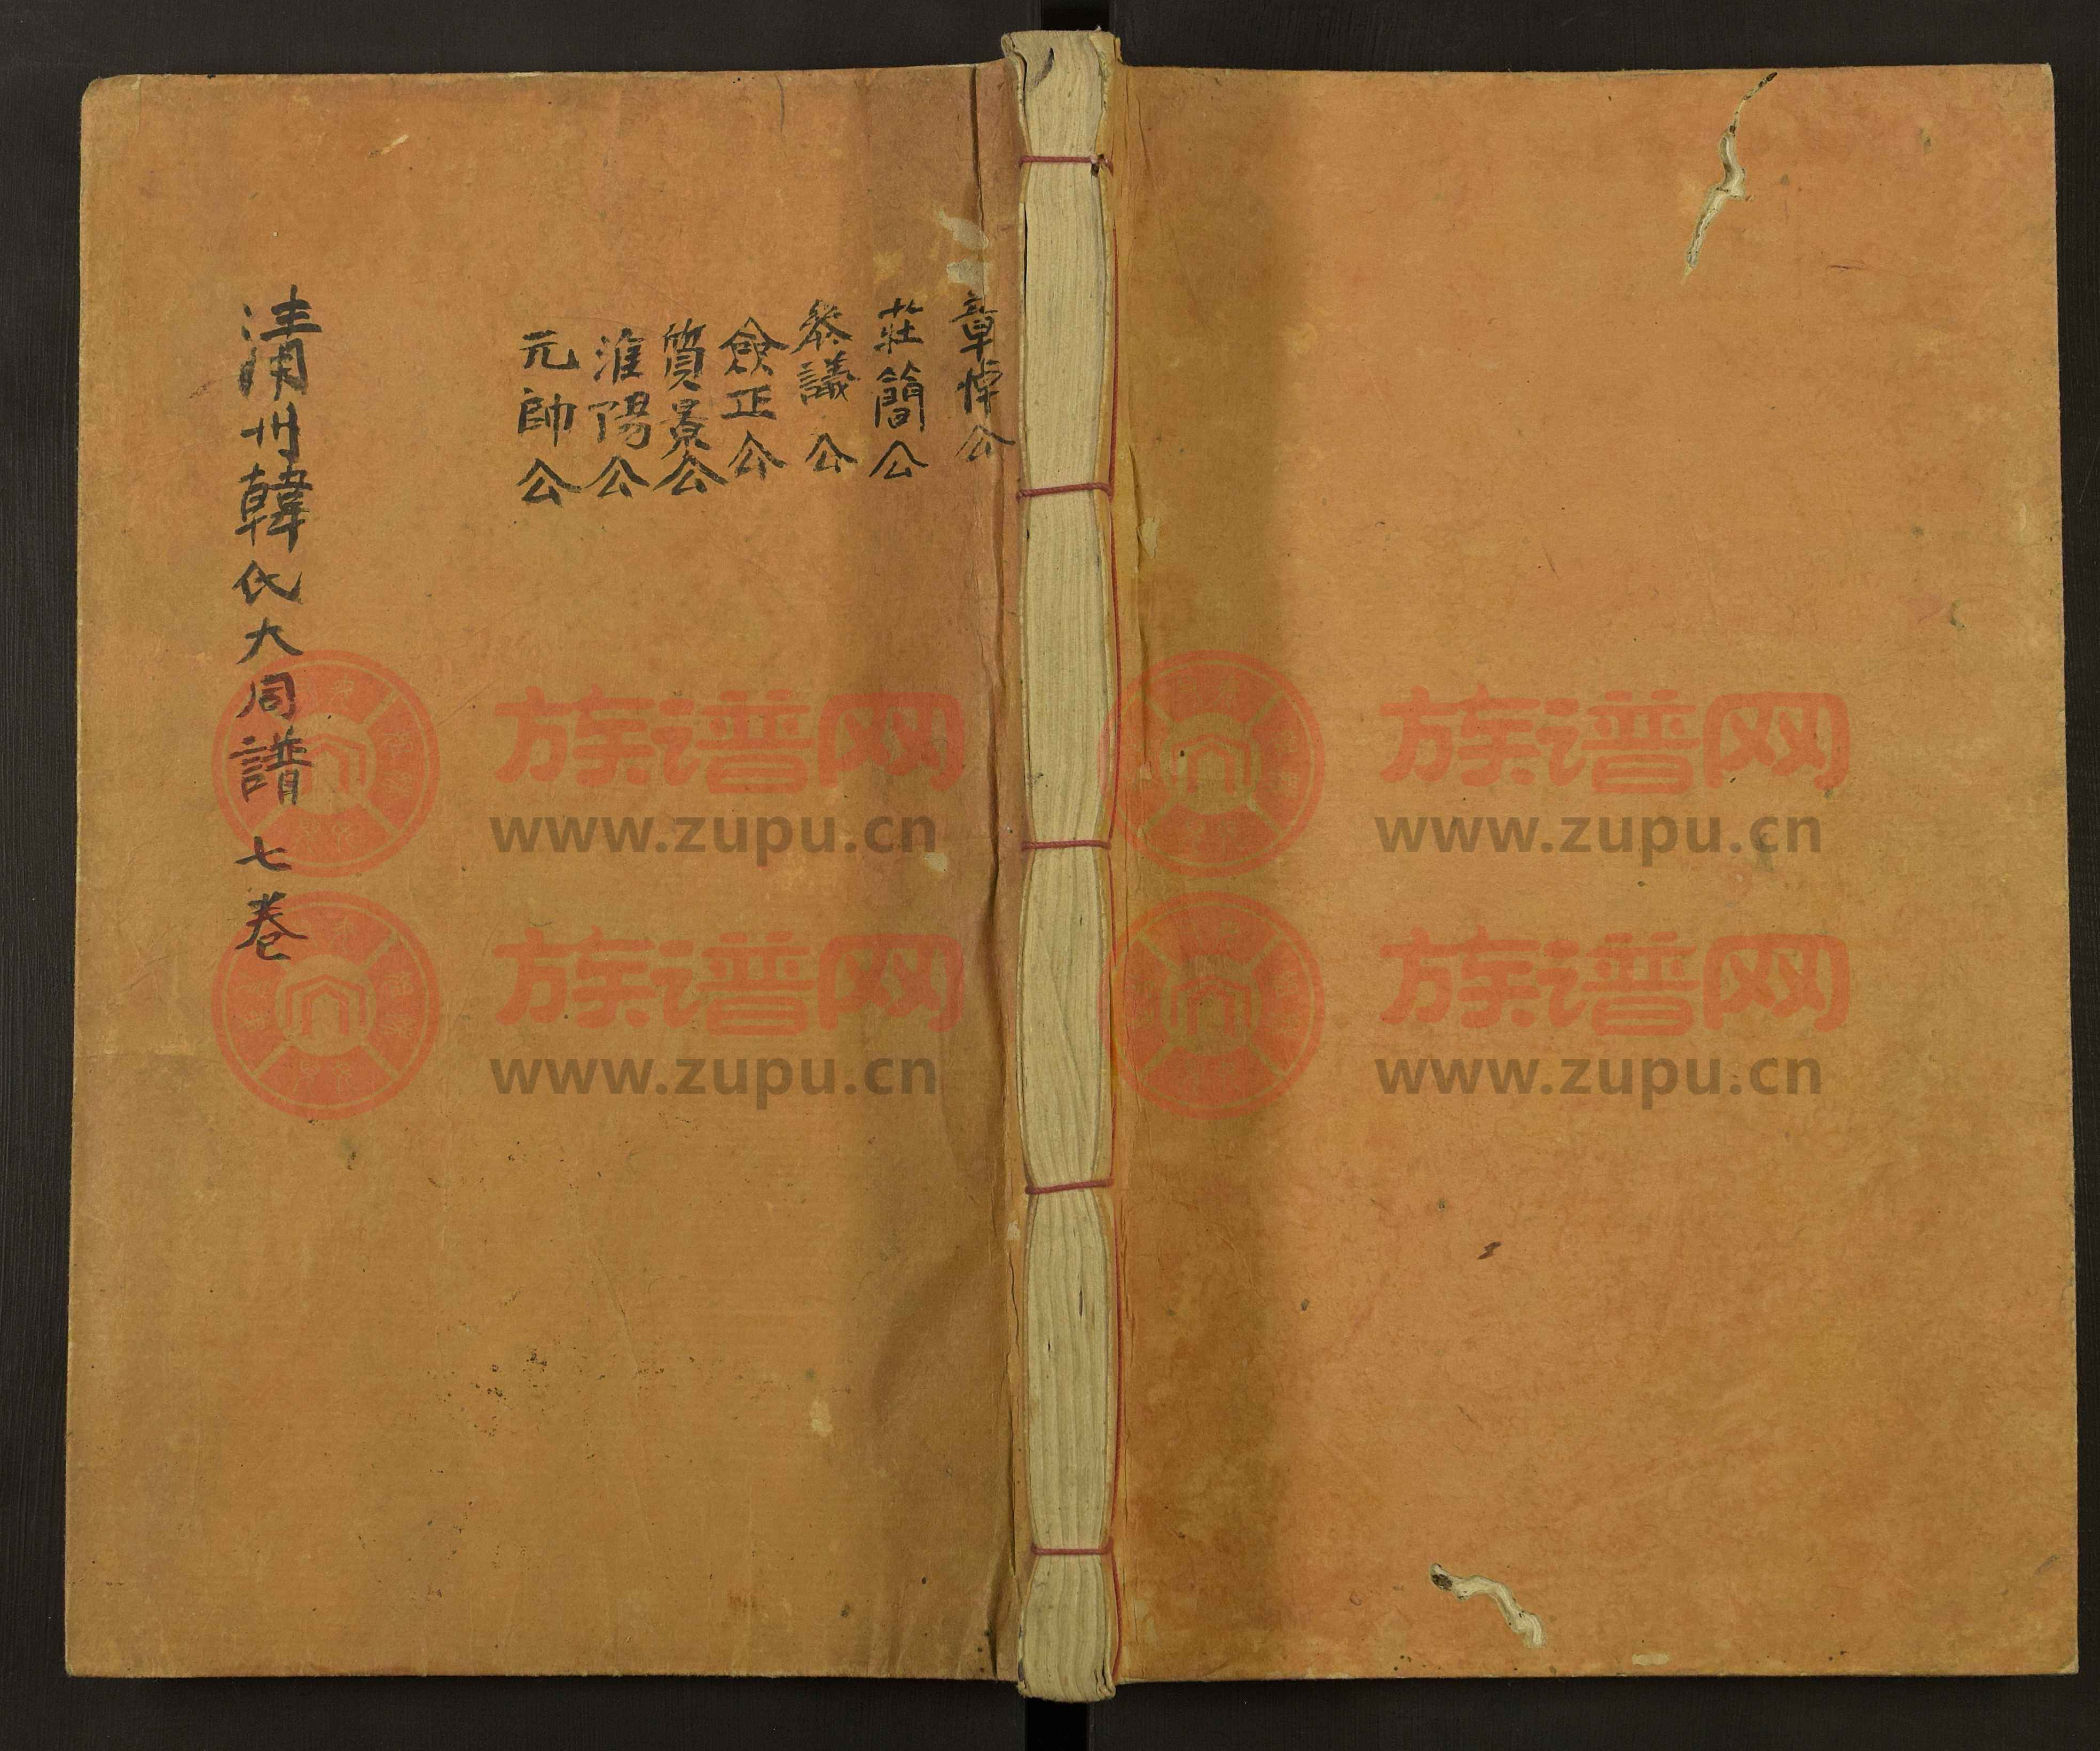 章悼公
莊簡公
參議公
僉正公
質景公
淮陽公
元帥公
清州韓氏大同譜 七卷
族谱网
www.zupu.cn
族谱网
www.zupu.cn
族谱网
www.zupu.cn
族谱网
www.zupu.cn